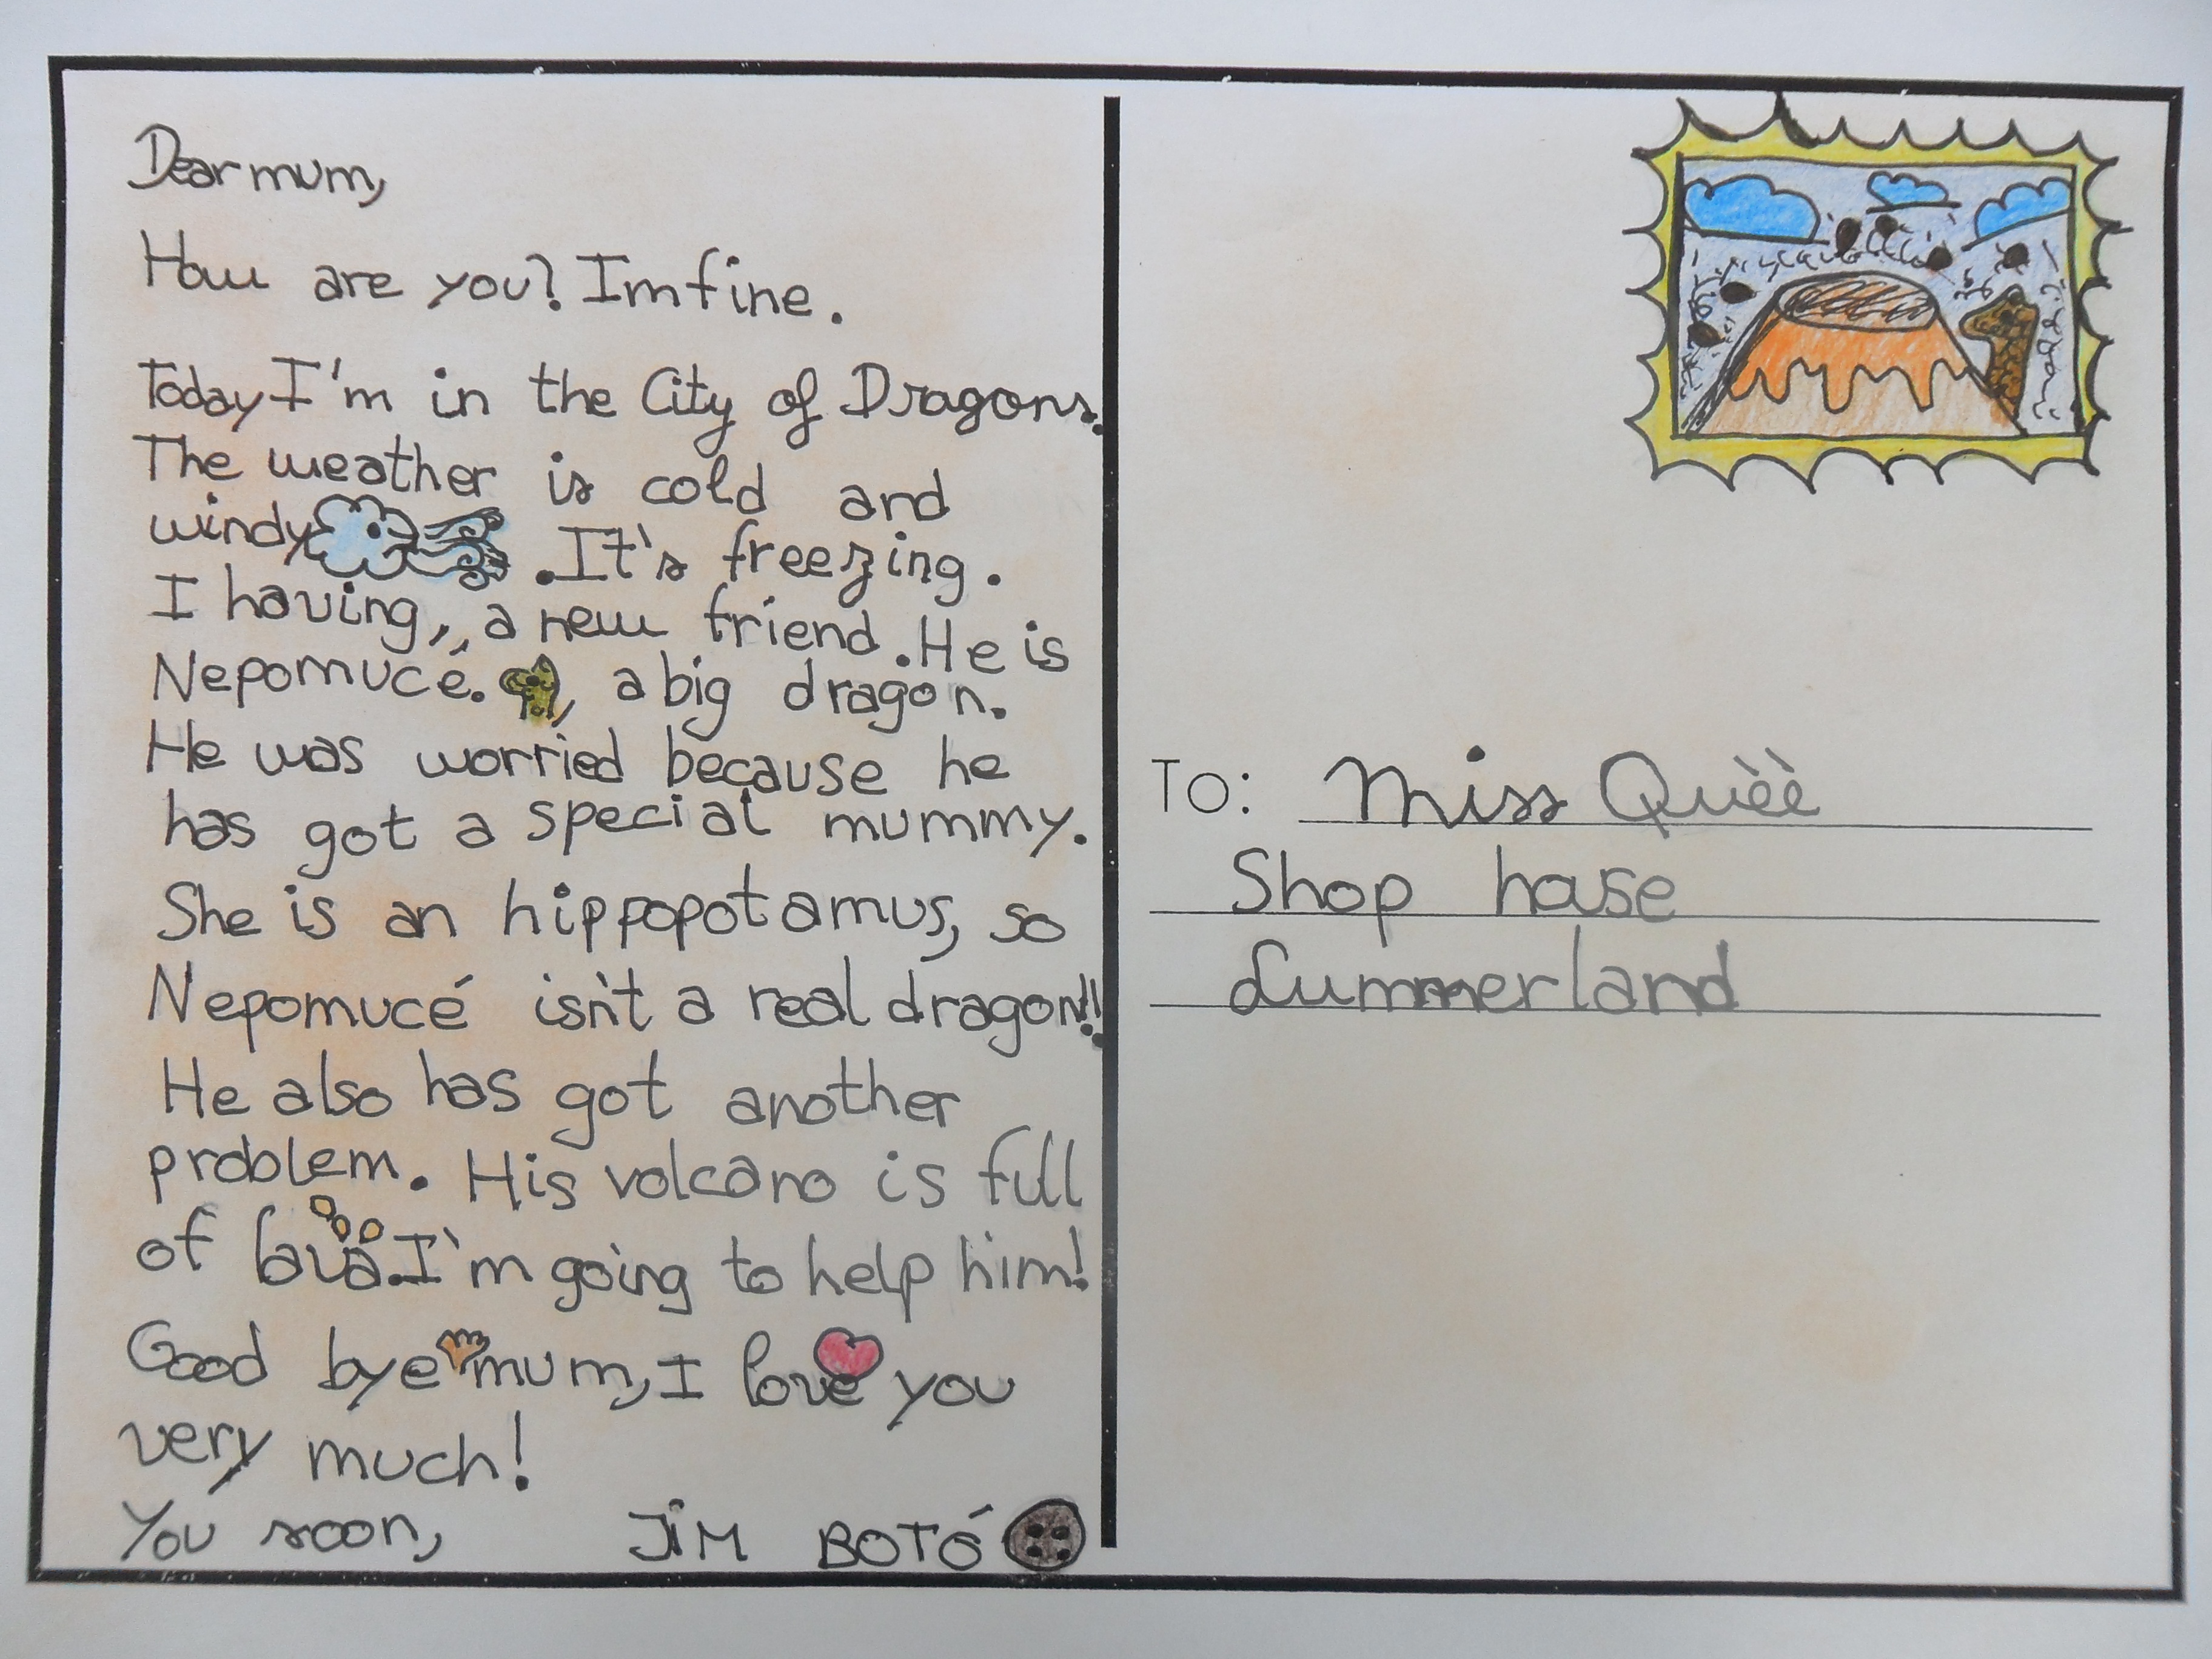 Dear mum,
How are you? Im fine.
Today I'm in the City of Dragons.
The weather is cold and
windy .It's freezing.
I having, a new friend. He is
Nepomucé. , a big dragon.
He was worried because he
has got a special mummy.
She is an hippopotamus, so
Nepomucé isn't a real dragon!!
He also has got another
problem. His volcano is full
of lava. I'm going to help him!
Good bye mum, I love you
very much!
You soon, JIM BOTÓ
TO: Miss Quèè
Shop house
Lummerland